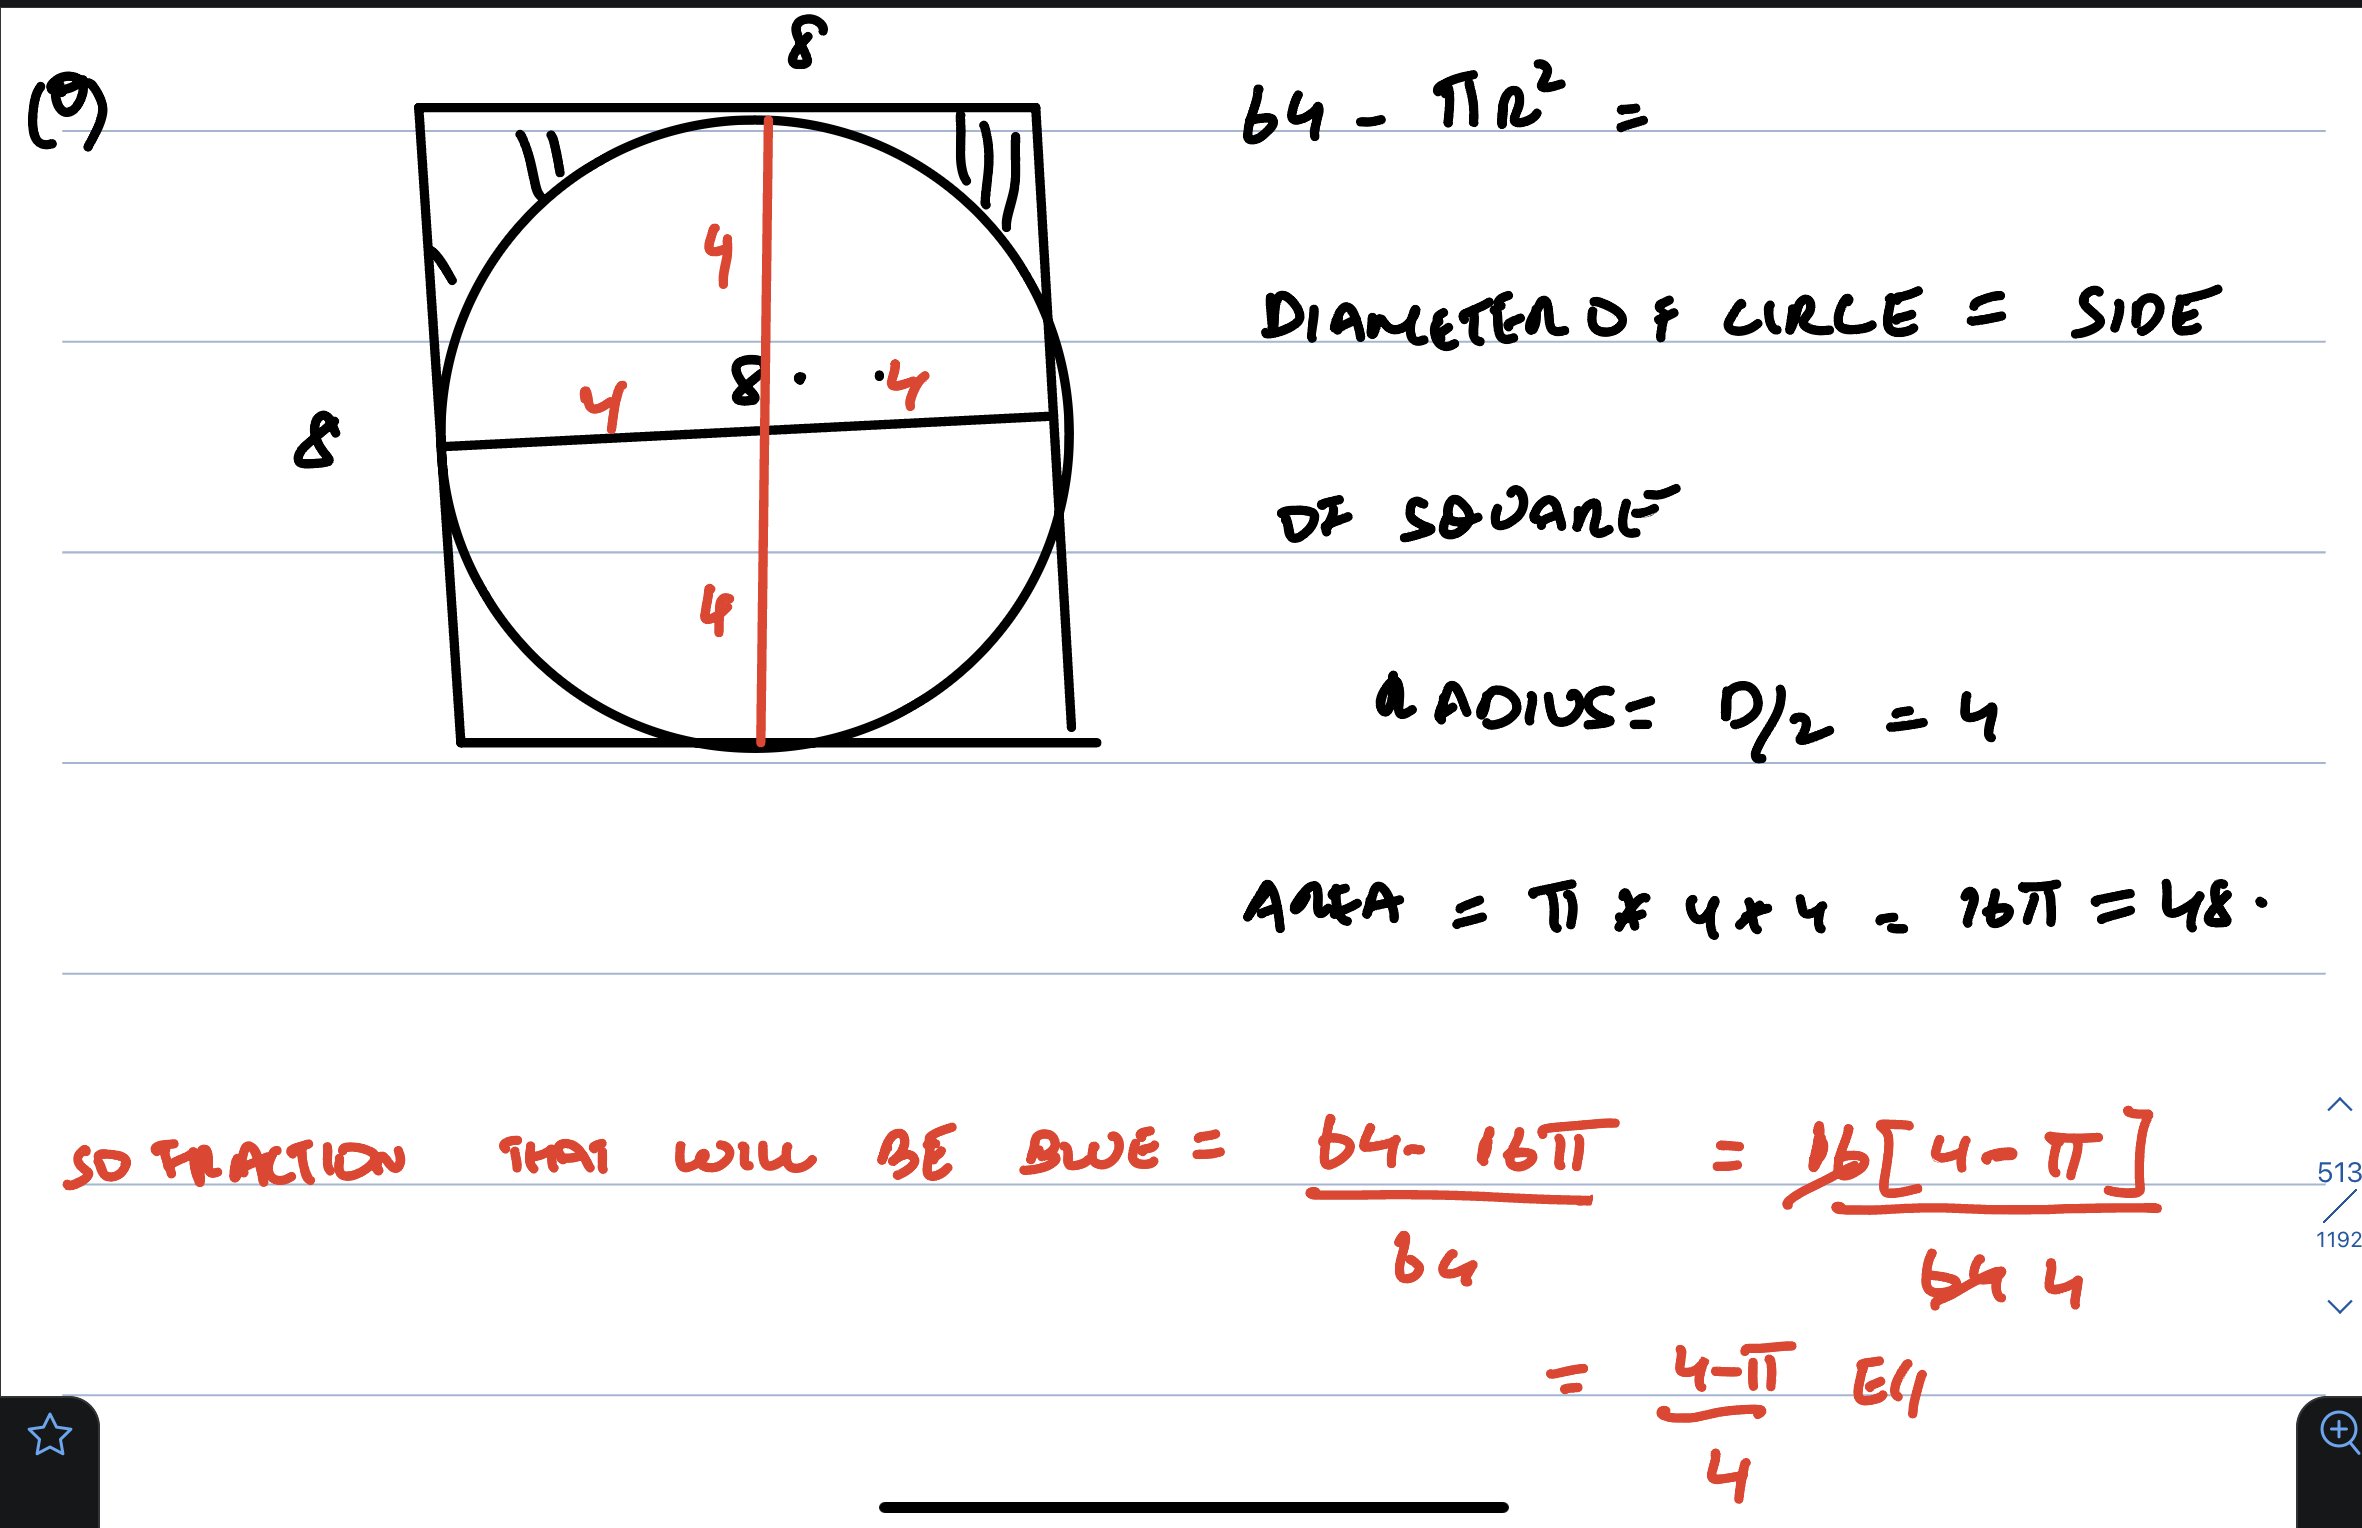 (Q)
8
64 - πR² =
4
DIAMETER OF CIRCLE = SIDE
4 8 . . 4
8
OF SQUARE
4
RADIUS = D/2 = 4
AREA = π * 4 * 4 = 16π = 48.
SO FRACTION THAT WILL BE BLUE = 64 - 16π / 64 = 16[4 - π] / 64 4
= 4-π / 4
513
/
1192